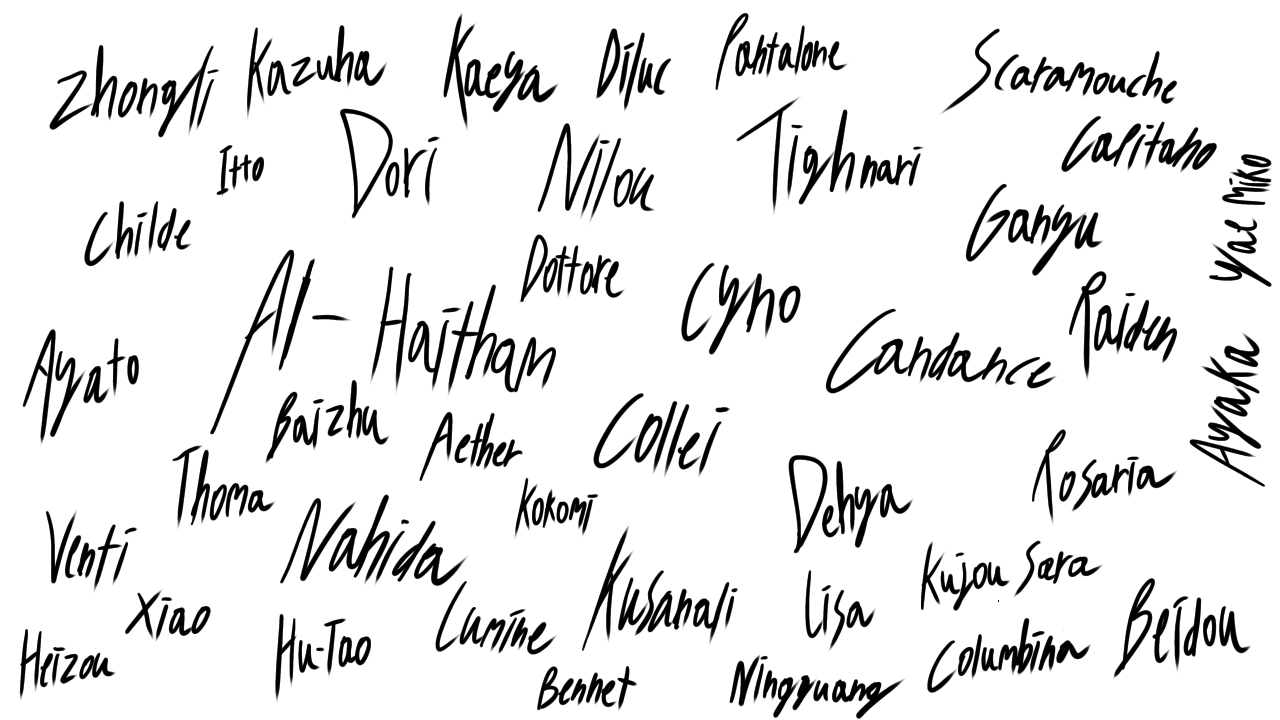 Zhongli
Kazuha
Kaeya
Diluc
Pantalone
Scaramouche
Itto
Dori
Nilou
Tighnari
Capitano
Yae Miko
Childe
Ganyu
Dottore
Al-Haitham
Cyno
Candance
Raiden
Ayato
Ayaka
Baizhu
Aether
Collei
Thoma
Kokomi
Dehya
Rosaria
Venti
Nahida
Kusanali
Kujou Sara
Xiao
Lumine
Lisa
Beidou
Heizou
Hu-Tao
Bennet
Ningguang
Columbina